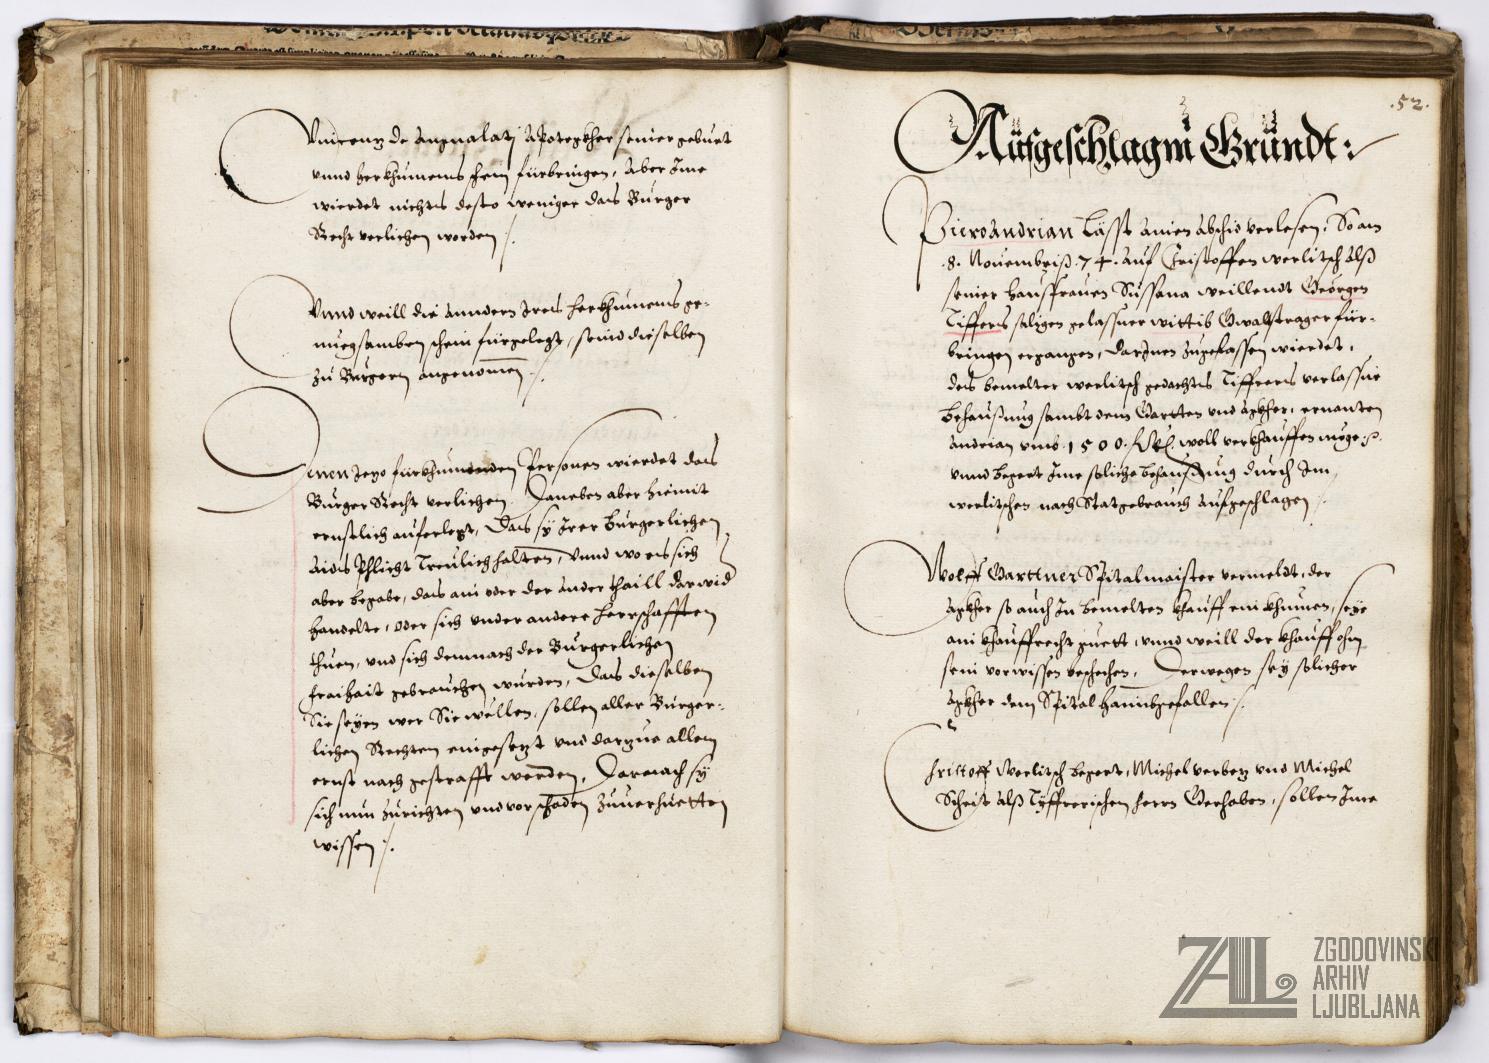 Vincenz de Angnalatj Apoteghker seiner geburt
vnnd herkhumens schein fürbringen, Aber Ime
wierdet nichts desto weniger das Burger
Recht verlichen worden /.
Vnnd weill die anndern Ires herkhumens ge-
nuegsamben schein fürgelegt, seind dieselben
zu Burgern angenomen /.
Denen jezo fürkhumenden Personen wierdet das
Burger Recht verlichen. Daneben aber hiemit
ernstlich auferlegt, Das sy Irer Burgerlichen
Aids Phlicht Treulich halten, Vnnd wo es sich
aber begabe, das ain oder der ander thaill darwid
handelte, oder sich vnder andere herrschafften
thuen, vnd sich demnach der Burgerlichen
freihait gebrauchen wurden, Das dieselben
Sie seyen wer Sie wellen, sollen aller Burger-
lichen Rechten entgesezt vnd darzue allem
ernst nach gestrafft werden, Darnach sy
sich nun zurichten vnd vor schaden zuuerhuetten
wissen /.
.52.
Aufgeschlagni Gründt:
Piero Andrian Lässt ainen Abschid verlesen, So am
.8. Nouembris .74. auf Cristoffen werlitsch alß
seiner hausfrauen Sussana weillendt Georgen
Tiffers seligen gelassner wittib Gwalstrager für-
bringen ergangen, darInen zugelassen wierdet,
das bemelter werlitsch gedachts Tiffrers verlassne
Behausung sambt dem Gartten vnd agkher, ernanten
Andrian vmb .1500. woll verkhauffen müge
vnnd begert Ime soliche behausung durch Im
werlitschen nach Statgebrauch aufgeschlagen /.
Wolff Garttner Spitalmaister vermeldt, der
agkher so auch In bemelten khauff ein khumen, seye
ain khauffrecht guett, vnnd weill der khauff ohn
sein vorwissen beschechen, Derwegen sey solicher
agkher dem Spital haimbgefallen /.
Cristoff Werlitsch begert, Michel verbez vnd Michel
Scheist alß Tyffrerischen herrn Gerhaben, sollen Ime
ZAL ZGODOVINSKI
ARHIV
LJUBLJANA